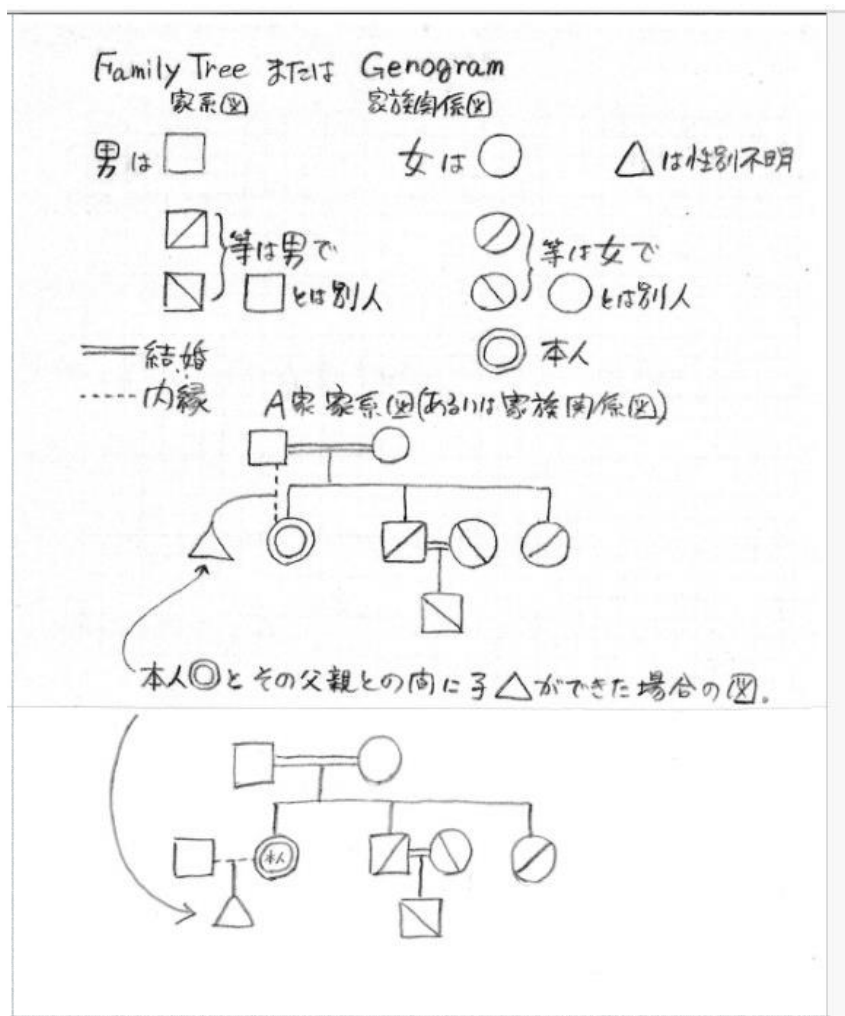 Family Tree または Genogram
家系図 家族関係図
男は□ 女は○ △は性別不明
等は男で 等は女で
□とは別人 ○とは別人
結婚 ◎ 本人
内縁 A家家系図(あるいは家族関係図)
本人◎とその父親との間に子△ができた場合の図。
本人